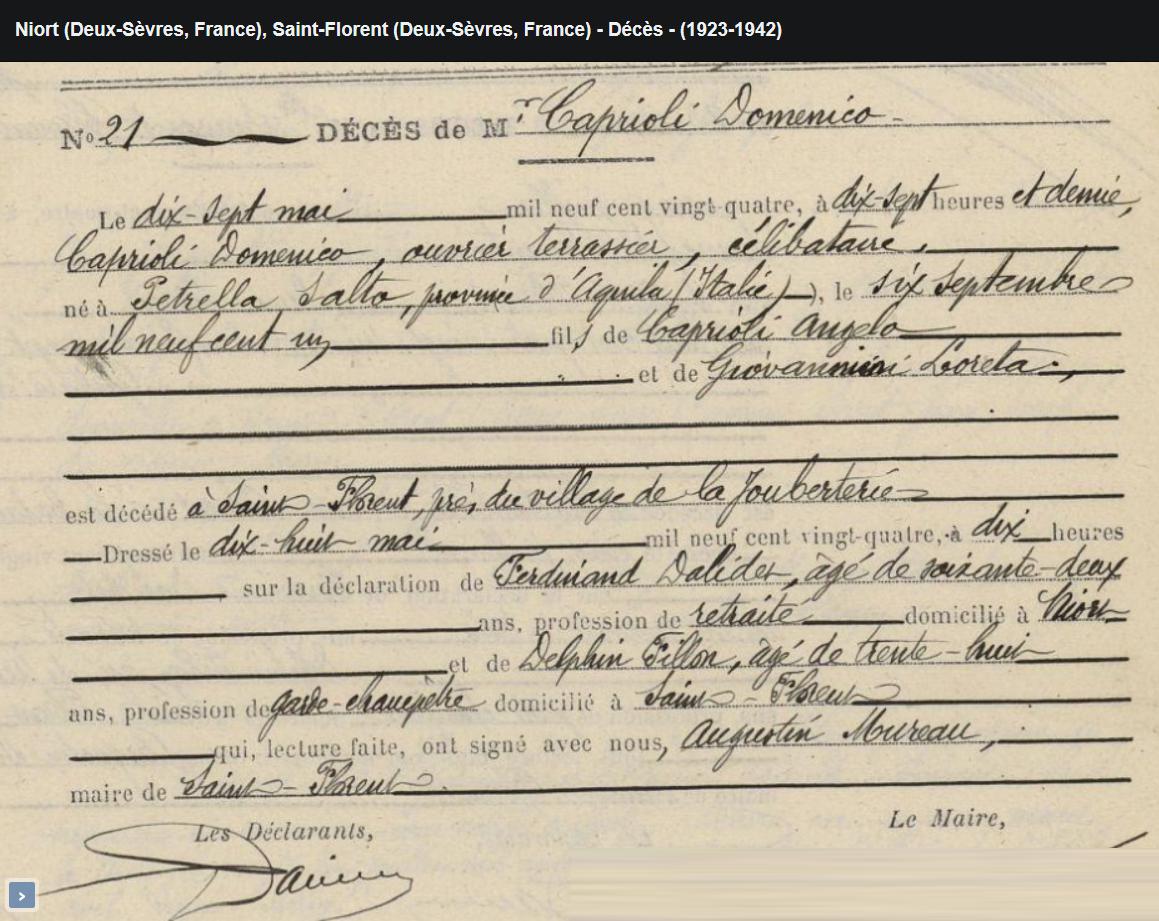 Niort (Deux-Sèvres, France), Saint-Florent (Deux-Sèvres, France) - Décès - (1923-1942)
No 21 DÉCÈS de Mr Caprioli Domenico
Le dix-sept mai mil neuf cent vingt-quatre, à dix-sept heures et demie,
Caprioli Domenico, ouvrier terrassier, célibataire,
né à Petrella Salto, province d'Aquila (Italie), le six septembre
mil neuf cent un fils de Caprioli Angelo
et de Giovannini Loreta,
est décédé à Saint-Florent, près du village de la Jouberterie
Dressé le dix-huit mai mil neuf cent vingt-quatre, à dix heures
sur la déclaration de Ferdinand Dalidet, âgé de soixante-deux
ans, profession de retraité domicilié à Niort
et de Delphin Fillon, âgé de trente-huit
ans, profession de garde-champêtre domicilié à Saint-Florent
qui, lecture faite, ont signé avec nous, Augustin Mureau,
maire de Saint-Florent.
Les Déclarants, Le Maire,